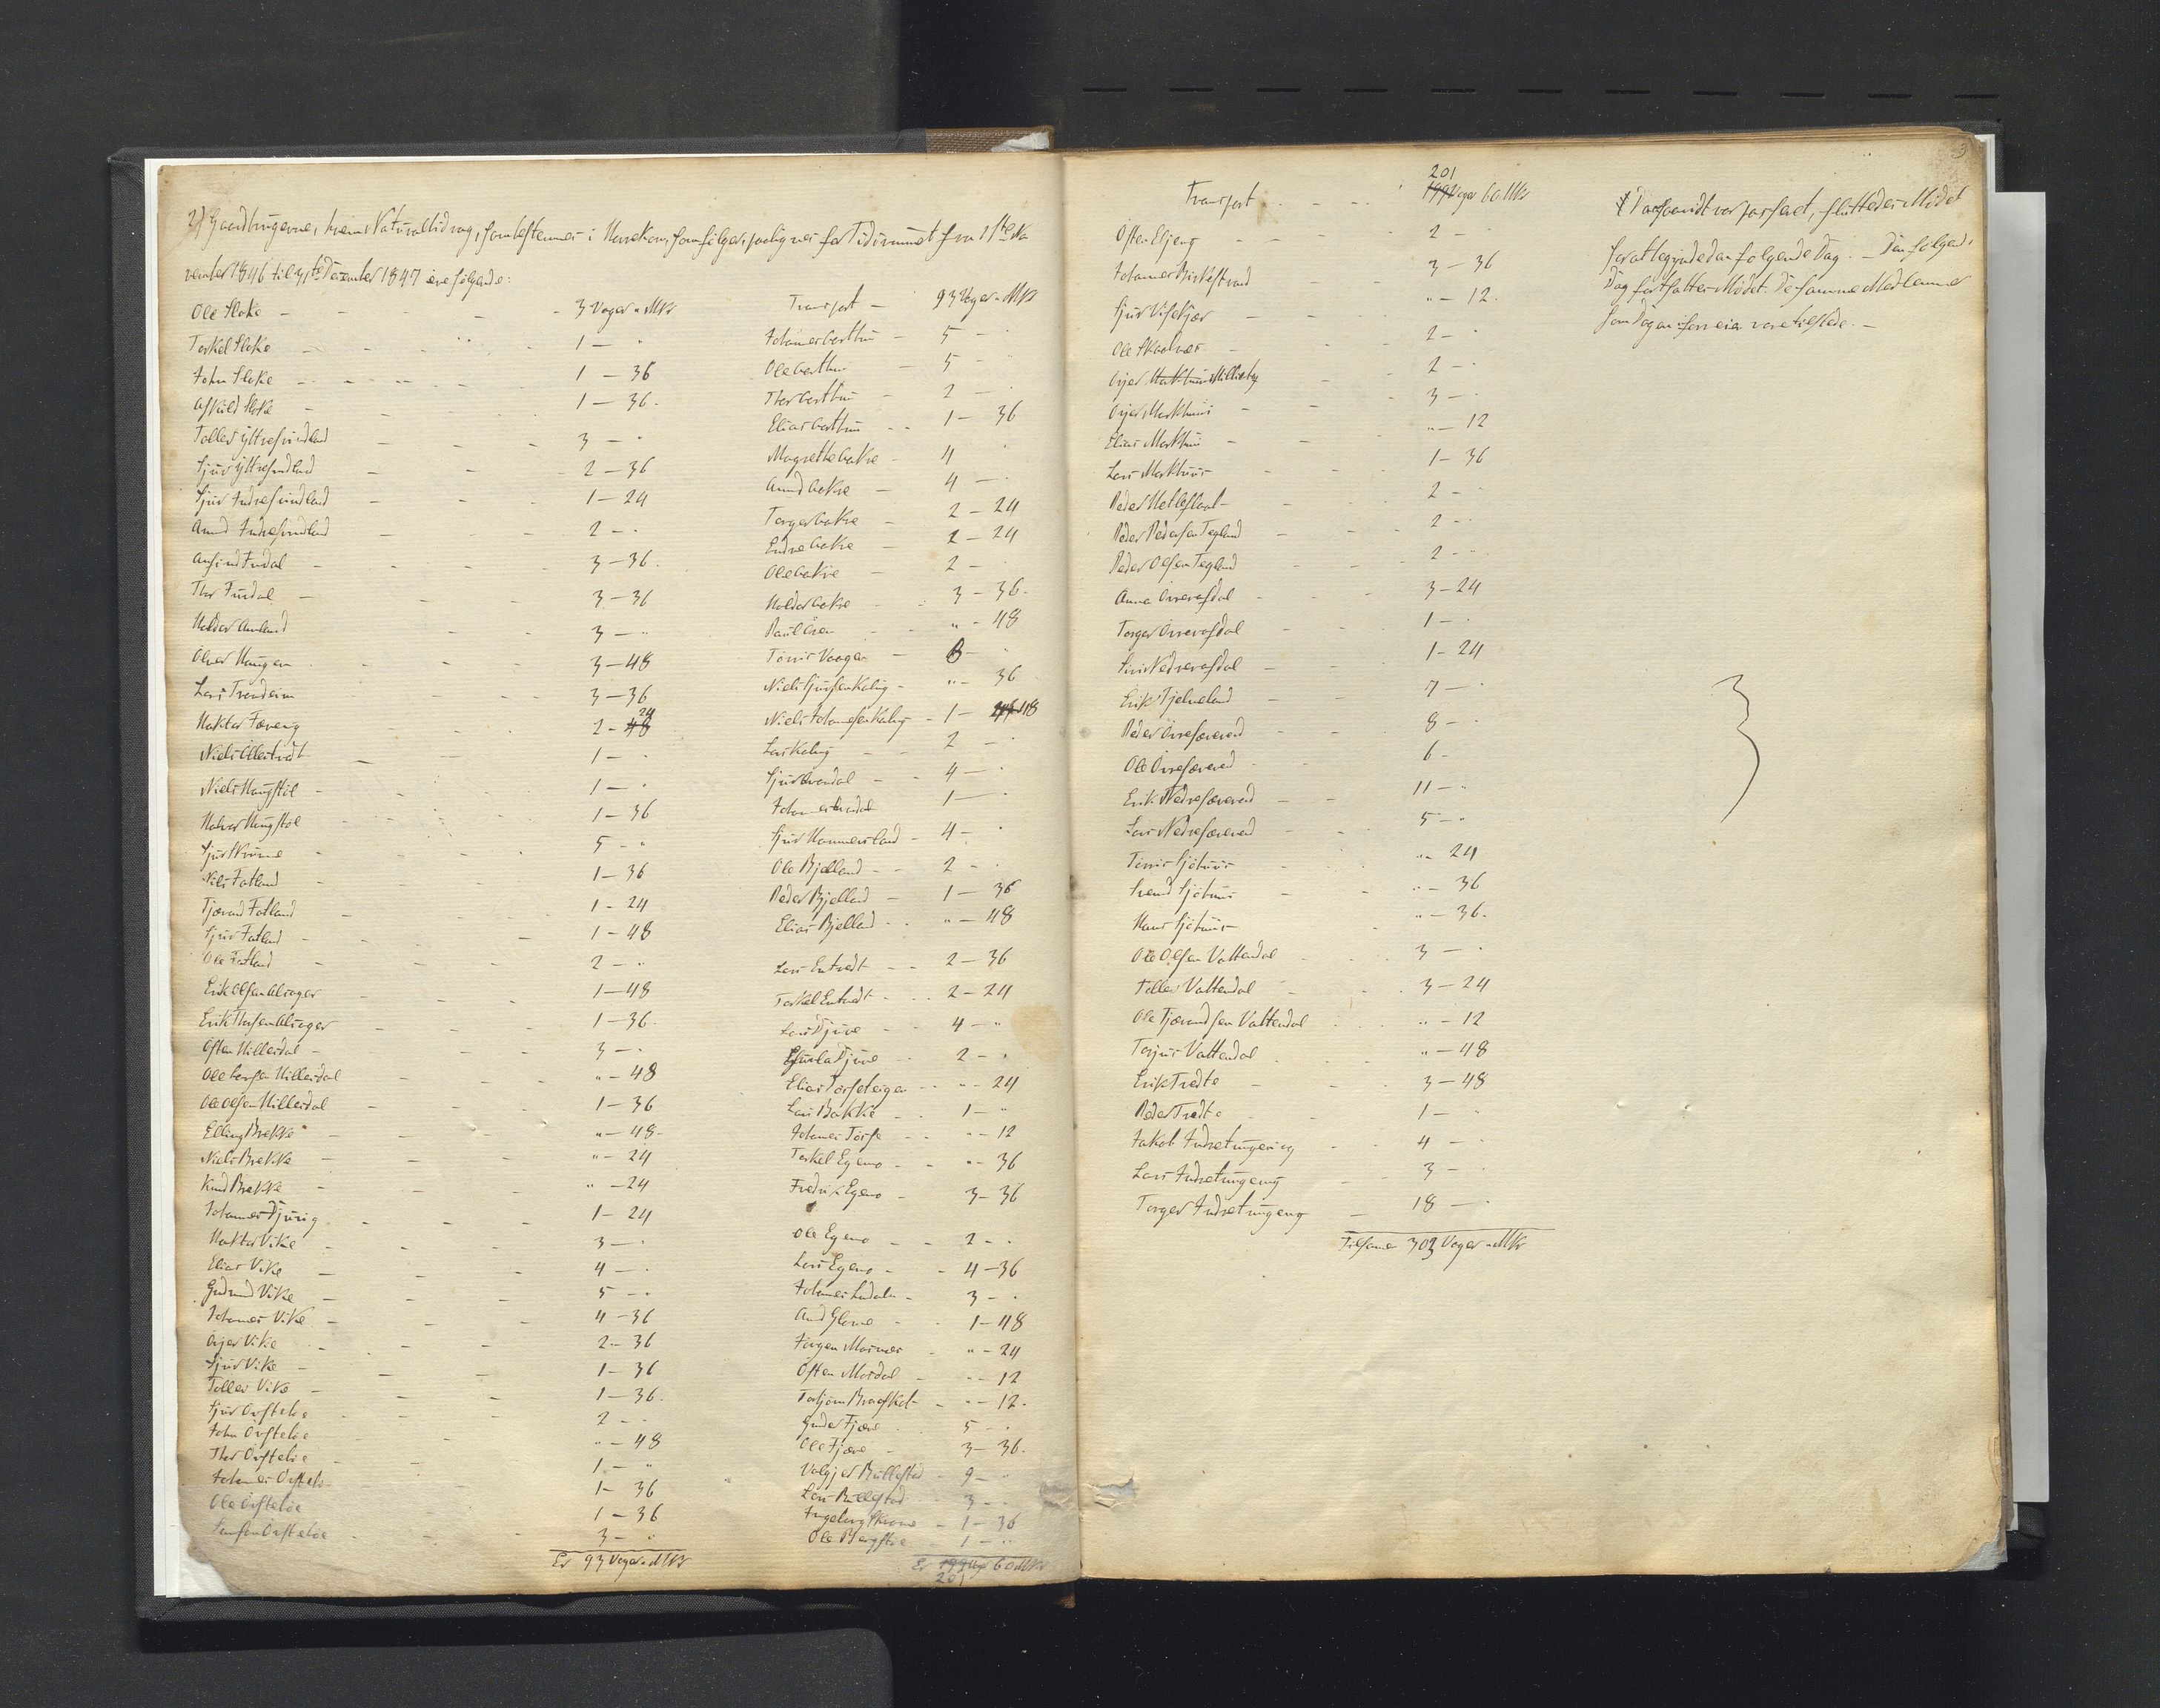 2) Gaardbrugerne, hvem Naturalbidrag, som bestemmes i Havrekorn, som følger, paalignes for Tidsrummet fra 11te No
vember 1846 til 31te December 1847 ere følgende:
Ole Sloke - - - - - 3 Voger " Mkr
Torkel Sloke - - 1 - "
John Sloke - - - - 1 - 36
Askild Sloke - - - 1 - 36.
Tollev Yttresundland - - - 3 - "
Sjur Yttresundland - - - 2 - 36
Sjur Indresundland - - - 1 - 24
Amund Indresundland - - - 2 - "
Ansind Fudal - - - 3 - 36.
Thor Fudal - - - 3 - 36
Haldor Amland - - 3 - "
Olver Haugen - - - 3 - 48
Lars Trondeim - - - 3 - 36
Haktor Færeng - - - 2 - 48 24
Niels - - 1 - "
Niels Haugstøl - - - 1 - "
Halvor Haugstøl - - - 1 - 36
Sjur Skrome - - - 5 - "
Nils Fatland - - - 1 - 36
Tjærand Fatland - - - 1 - 24
Sjur Fatland - - - 1 - 48
Ole Fatland - - - 2 - "
Erik Olsen Alsager - - - 1 - 48
Erik Thorsen Alsager - - - 1 - 36.
Østen Hillerdal - - - 3 - "
Ole Larsen Hillerdal - - - " - 48
Ole Olsen Hillerdal - - - 1 - 36
Elling Brekke - - - " - 48 -
Niels Brekke - - - " - 24
Knud Brekke - - - " - 24
Johannes Djurig - - - 1 - 24
Haktor Vike - - - 3 - "
Elias Vike - - - 4 - "
Gudmund Vike - - - 5 - "
Johannes Vike - - - 4 - 36
Anjer Vike - - - 2 - 36
Sjur Vike - - - 1 - 36
Tollev Vike - - - 1 - 36.
Sjur Ørsteløe - - - 2 - "
John Ørsteløe - - - " - 48
Thor Ørsteløe - - - 1 - "
Johannes Ørsteløe - - 1 - 36
Ole Ørsteløe - - 1 - 36
Ørsteløe - - - 3 - "
Er 93 Voger " Mkr
Transport - 93 Voger " Mkr
Johannes Aarthun - 5 - "
Ole Aarthun - 5 - "
Thor Aarthun - 2 - "
Elias Aarthun - - 1 - 36
Magrethe Aakre - 4 "
Amund Aakre - 4 - "
Torger Aakre - 2 - 24
Endre Aakre - 2 - 24
Ole Aakre - 2 - "
Haldor Aakre - 3 - 36.
Paul Øren - - " - 48
Tørris Vaagen - 8 - "
Niels Sjursen Kaling - " - 36
Niels Johannesen Kaling - 1 - 48
Lars Kaling - - 2 - "
Sjur Avendal - - 4 - "
Johannes Avendal 1 - "
Sjur Hammersland - 4 - "
Ole Bjelland - - 2 - "
Peder Bjelland - 1 - 36
Elias Bjelland - - " - 48
Lars Entvedt - - 2 - 36
Torkel Entvedt - - - 2 - 24
Lars Djuve - - 4 - "
Djuve - - 2 - "
Elias Torsteigen - - " - 24
Lars Bakke - - 1 - "
Johannes Torse - - " - 12
Torkel Egemo - - " - 36
Fredrik Egemo - 3 - 36
Ole Egemo - - 2 - "
Lars Egemo - - 4 - 36
Johannes - 3 - "
Amund - - 1 - 48
Jørgen - " - 24
Østen Mosdal - " - 12
Torbjørn - " - 12.
Gudor Fjære - 5 - "
Ole Fjære - 3 - 36.
Valgjer Bullestad - 9 - "
Lars Bullestad - 3 - "
Ingeborg Skrome - 1 - 36
Ole Bergstøe - 1 - "
Er 199 Voger 60 Mkr
201
201
Transport - - - 199 Voger 60 Mkr
Østen Eljeng - - - 2 - "
Johannes Birkestrand - - 3 - 36
Sjur Visekjær - - - " - 12.
Ole Skaalnes - - - 2 -
Anjer Markhuus Milleteig - - 2 - "
Anjer Markhuus - - - 3 - "
Elias Markhuus - - - " - 12
Lars Markhuus - - - 1 - 36
Peder Hetleflaat - - - 2 - "
Peder Pedersen Tegland - - - 2 - "
Peder Olsen Tegland - - - 2 - "
Anna Øvreaasdal - - - 3 - 24
Torger Øvreaasdal - - - 1 - "
Siri Nedreaasdal - - - 1 - 24
Erik Fjelneland - - - 7 - "
Peder Øvresævereid - - 8 - "
Ole Øvresævereid - - 6 -
Erik Nedresævereid - - 11 - "
Lars Nedresævereid - - 5 - "
Tørris Sjøhuus - - - " - 24
Svend Sjøhuus - - " - 36
Hans Sjøhuus - " - 36.
Ole Olsen Vattendal - - - 3 - "
Tollev Vattendal - - - 3 - 24
Ole Tjærandsen Vattendal - - - " - 12
Torjus Vattendal - - - " - 48
Erik Tredte - - - 3 - 48
Peder Tredte - - - 1 - "
Jakob Indretungesvig - - 4 - "
Lars Indretungesvig - - 3 - "
Torger Indretungesvig - 18 - "
Tilsammen 303 Voger " Mkr
3
Da saavidt var passeret, sluttedes Mødet
for at begyndes den følgende Dag. - Den følgende
Dag fortsattes Mødet. De samme Medlemmer
som Dagen forreien vare tilstede. -